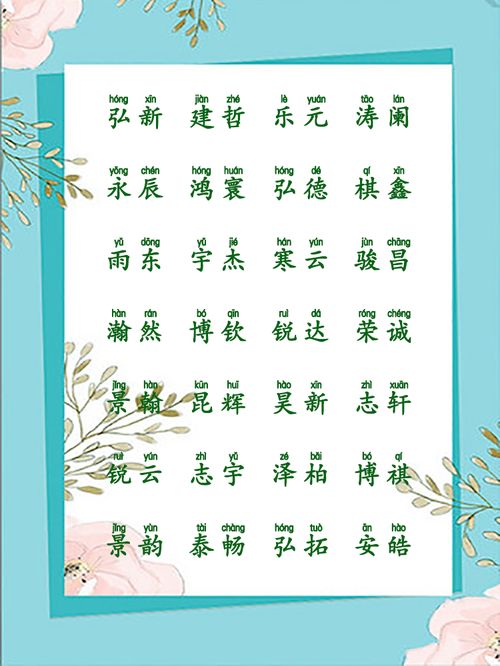 hóng xīn jiàn zhé lè yuán tāo lán
弘新 建哲 乐元 涛阑
yǒng chén hóng huán hóng dé qí xīn
永辰 鸿寰 弘德 棋鑫
yǔ dōng yǔ jié hán yún jùn chāng
雨东 宇杰 寒云 骏昌
hàn rán bó qīn ruì dá róng chéng
瀚然 博钦 锐达 荣诚
jǐng hàn kūn huī hào xīn zhì xuān
景翰 昆辉 昊新 志轩
ruì yún zhì yǔ zé bǎi bó qí
锐云 志宇 泽柏 博祺
jǐng yùn tài chàng hóng tuò ān hào
景韵 泰畅 弘拓 安皓